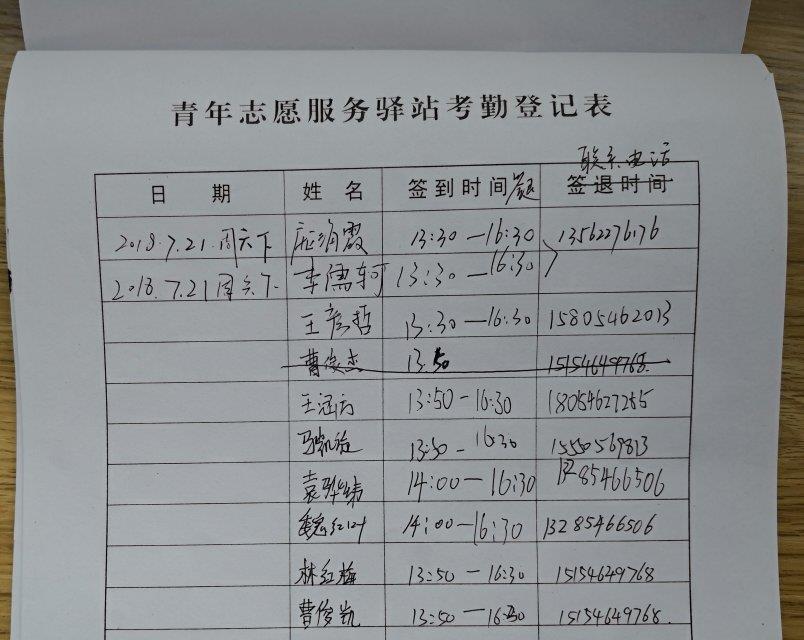 青年志愿服务驿站考勤登记表
联系电话
日 期 姓 名 签到时间 签退时间
2018.7.21.周六下 13:30—16:30 13562276176
2018.7.21周六下. 李儒轲 13:30—16:30
王彦哲 13:30—16:30 15805462013
曹俊杰 13:50 15154649768.
王涵方 13:50-16:30 18054627255
13:50-16:30 15550569813
袁骅炜 14:00-16:30 85466506
魏红叶 14:00—16:30 13285466506
林红梅 13:50-16:30 15154649768
曹俊凯 13:50—16:30 15154649768.